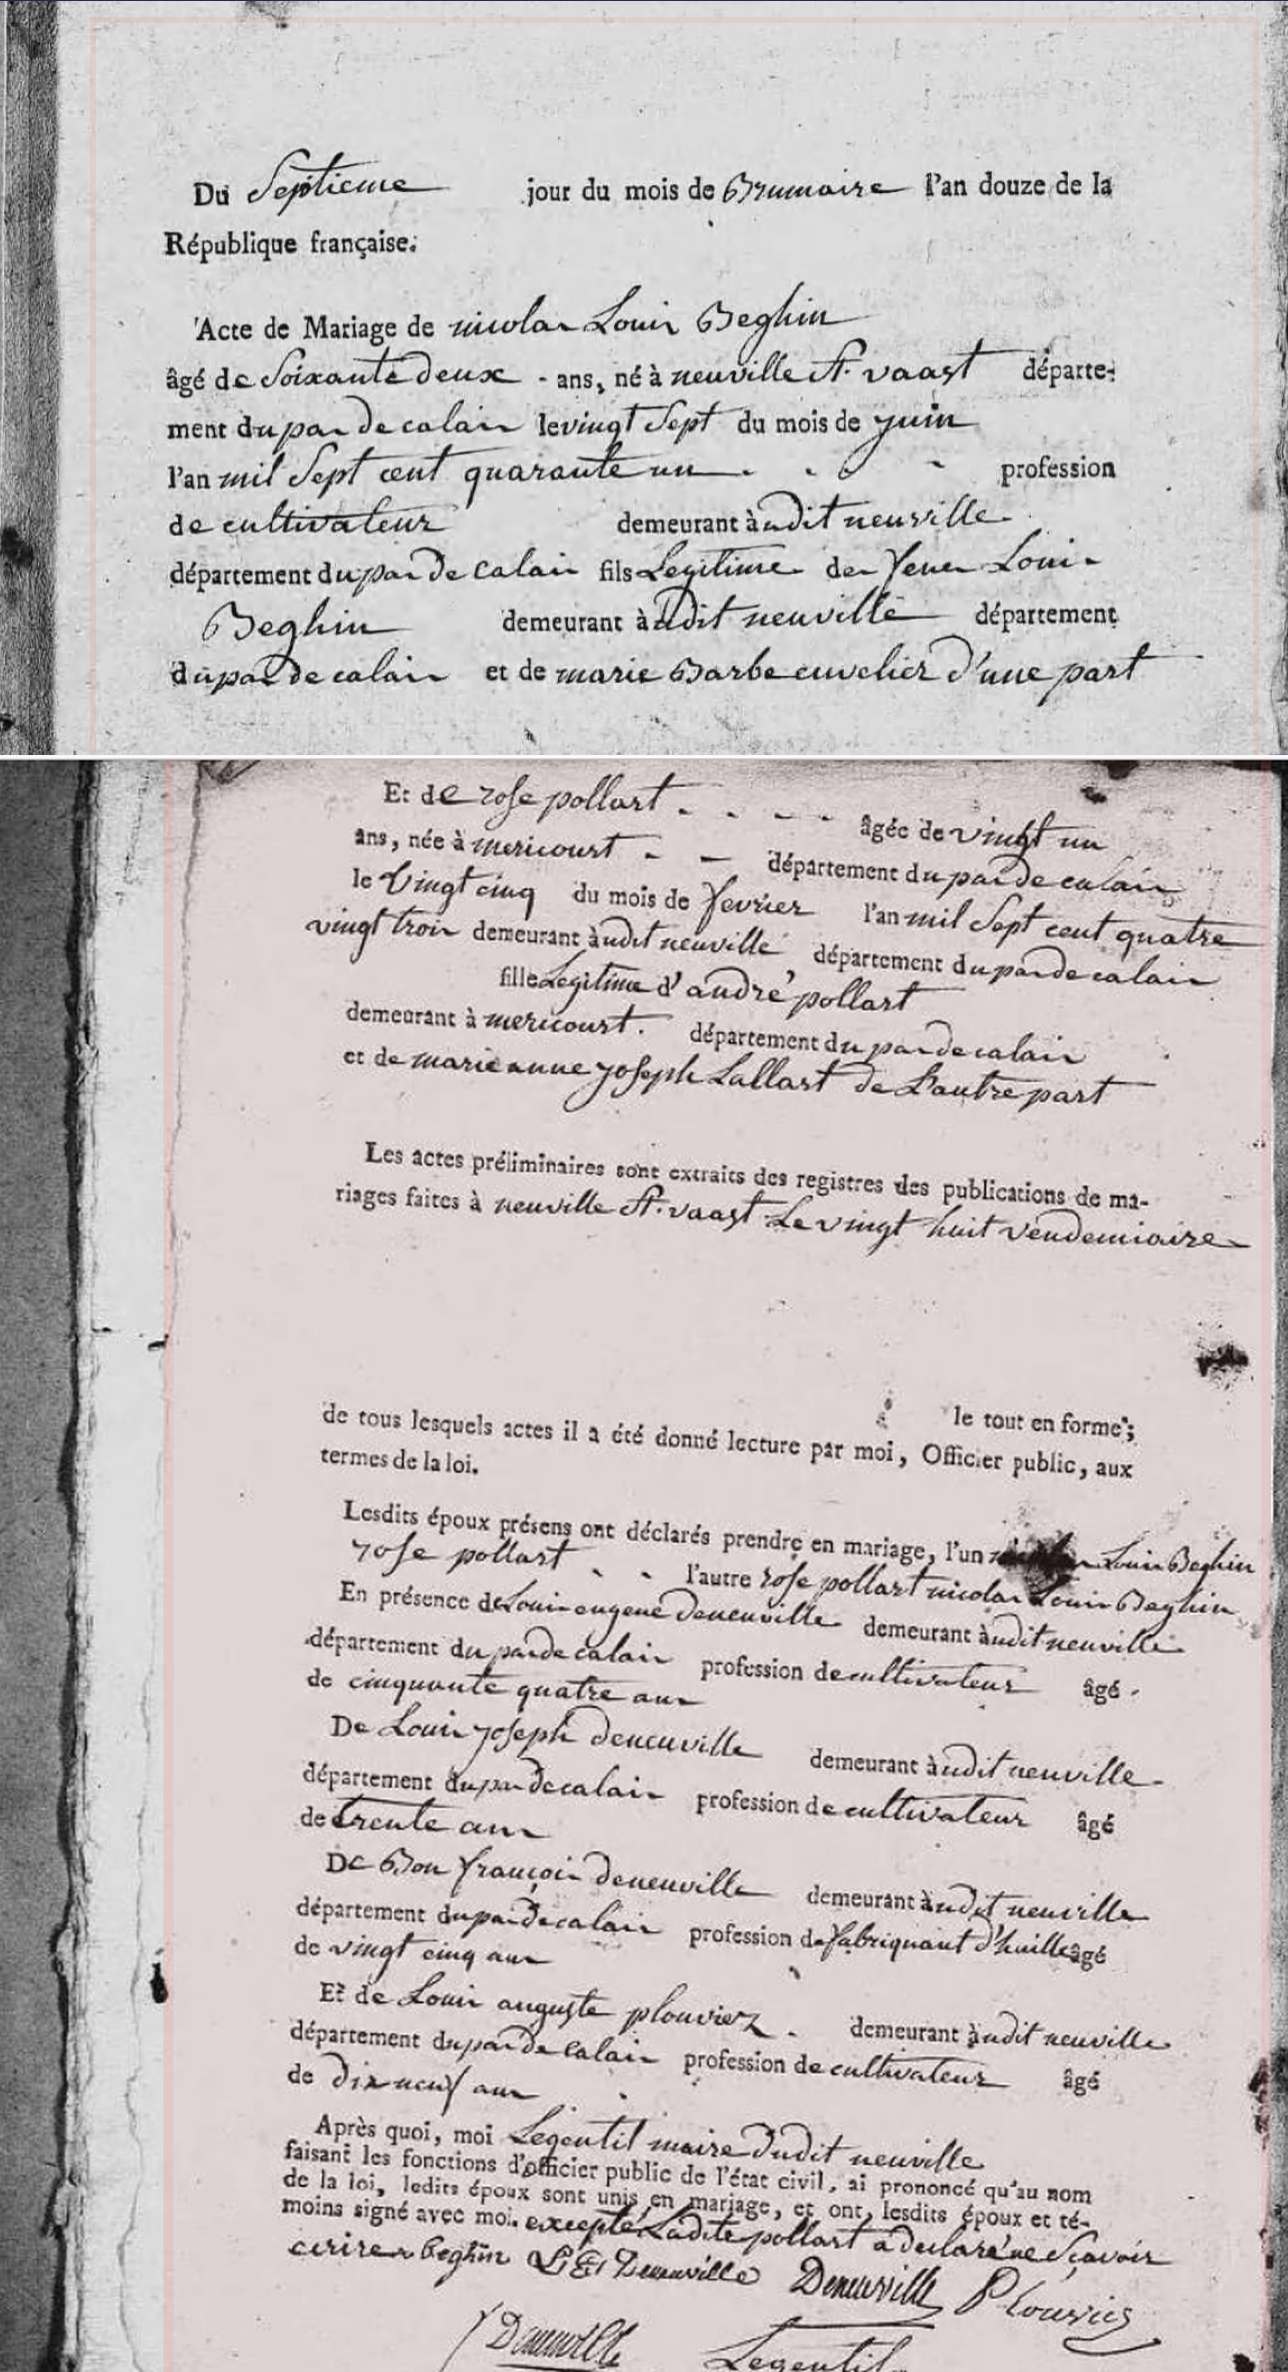 Du Septieme jour du mois de Brumaire l'an douze de la
République française.
Acte de Mariage de nicolas Louis Beghin
âgé de Soixante deux - ans, né à neuville St. vaast départe-
ment du pas de calais le vingt Sept du mois de juin
l'an mil Sept cent quarante un profession
de cultivateur demeurant à udit neuville
département du pas de Calais fils Legitime des feus Louis
Beghin demeurant à udit neuville département
du pas de calais et de marie Barbe cuvelier d'une part
Et de rose pollart âgée de vingt un
ans, née à mericourt département du pas de calais
le Vingt cinq du mois de fevrier l'an mil Sept cent quatre
vingt trois demeurant à udit neuville département du pas de calais
fille Legitime d'andré pollart
demeurant à mericourt. département du pas de calais
et de marie anne joseph Lallart de L'autre part
Les actes préliminaires sont extraits des registres des publications de ma-
riages faites à neuville St. vaast Le vingt huit vendemiaire
le tout en forme;
de tous lesquels actes il a été donné lecture par moi, Officier public, aux
termes de la loi.
Lesdits époux présens ont déclarés prendre en mariage, l'un Louis Beghin
rose pollart l'autre rose pollart nicolas Louis Beghin
En présence de Louis eugene deneuville demeurant à udit neuville
département du pas de calais profession de cultivateur âgé
de cinquante quatre ans
De Louis joseph deneuville demeurant à udit neuville
département du pas de calais profession de cultivateur âgé
de trente ans
De Bon françois deneuville demeurant à udit neuville
département du pas de calais profession de fabriquant d'huille âgé
de vingt cinq ans
Et de Louis auguste plouviez demeurant à udit neuville
département du pas de Calais profession de cultivateur âgé
de dix neuf ans
Après quoi, moi Legentil maire dudit neuville
faisant les fonctions d'officier public de l'état civil, ai prononcé qu'au nom
de la loi, ledits époux sont unis en mariage, et ont, lesdits époux et té-
moins signé avec moi. excepté Ladite pollart a declaré ne Sçavoir
ecrire Beghin L E Deneuville Deneuville Plouviez
Deneuville Legentil